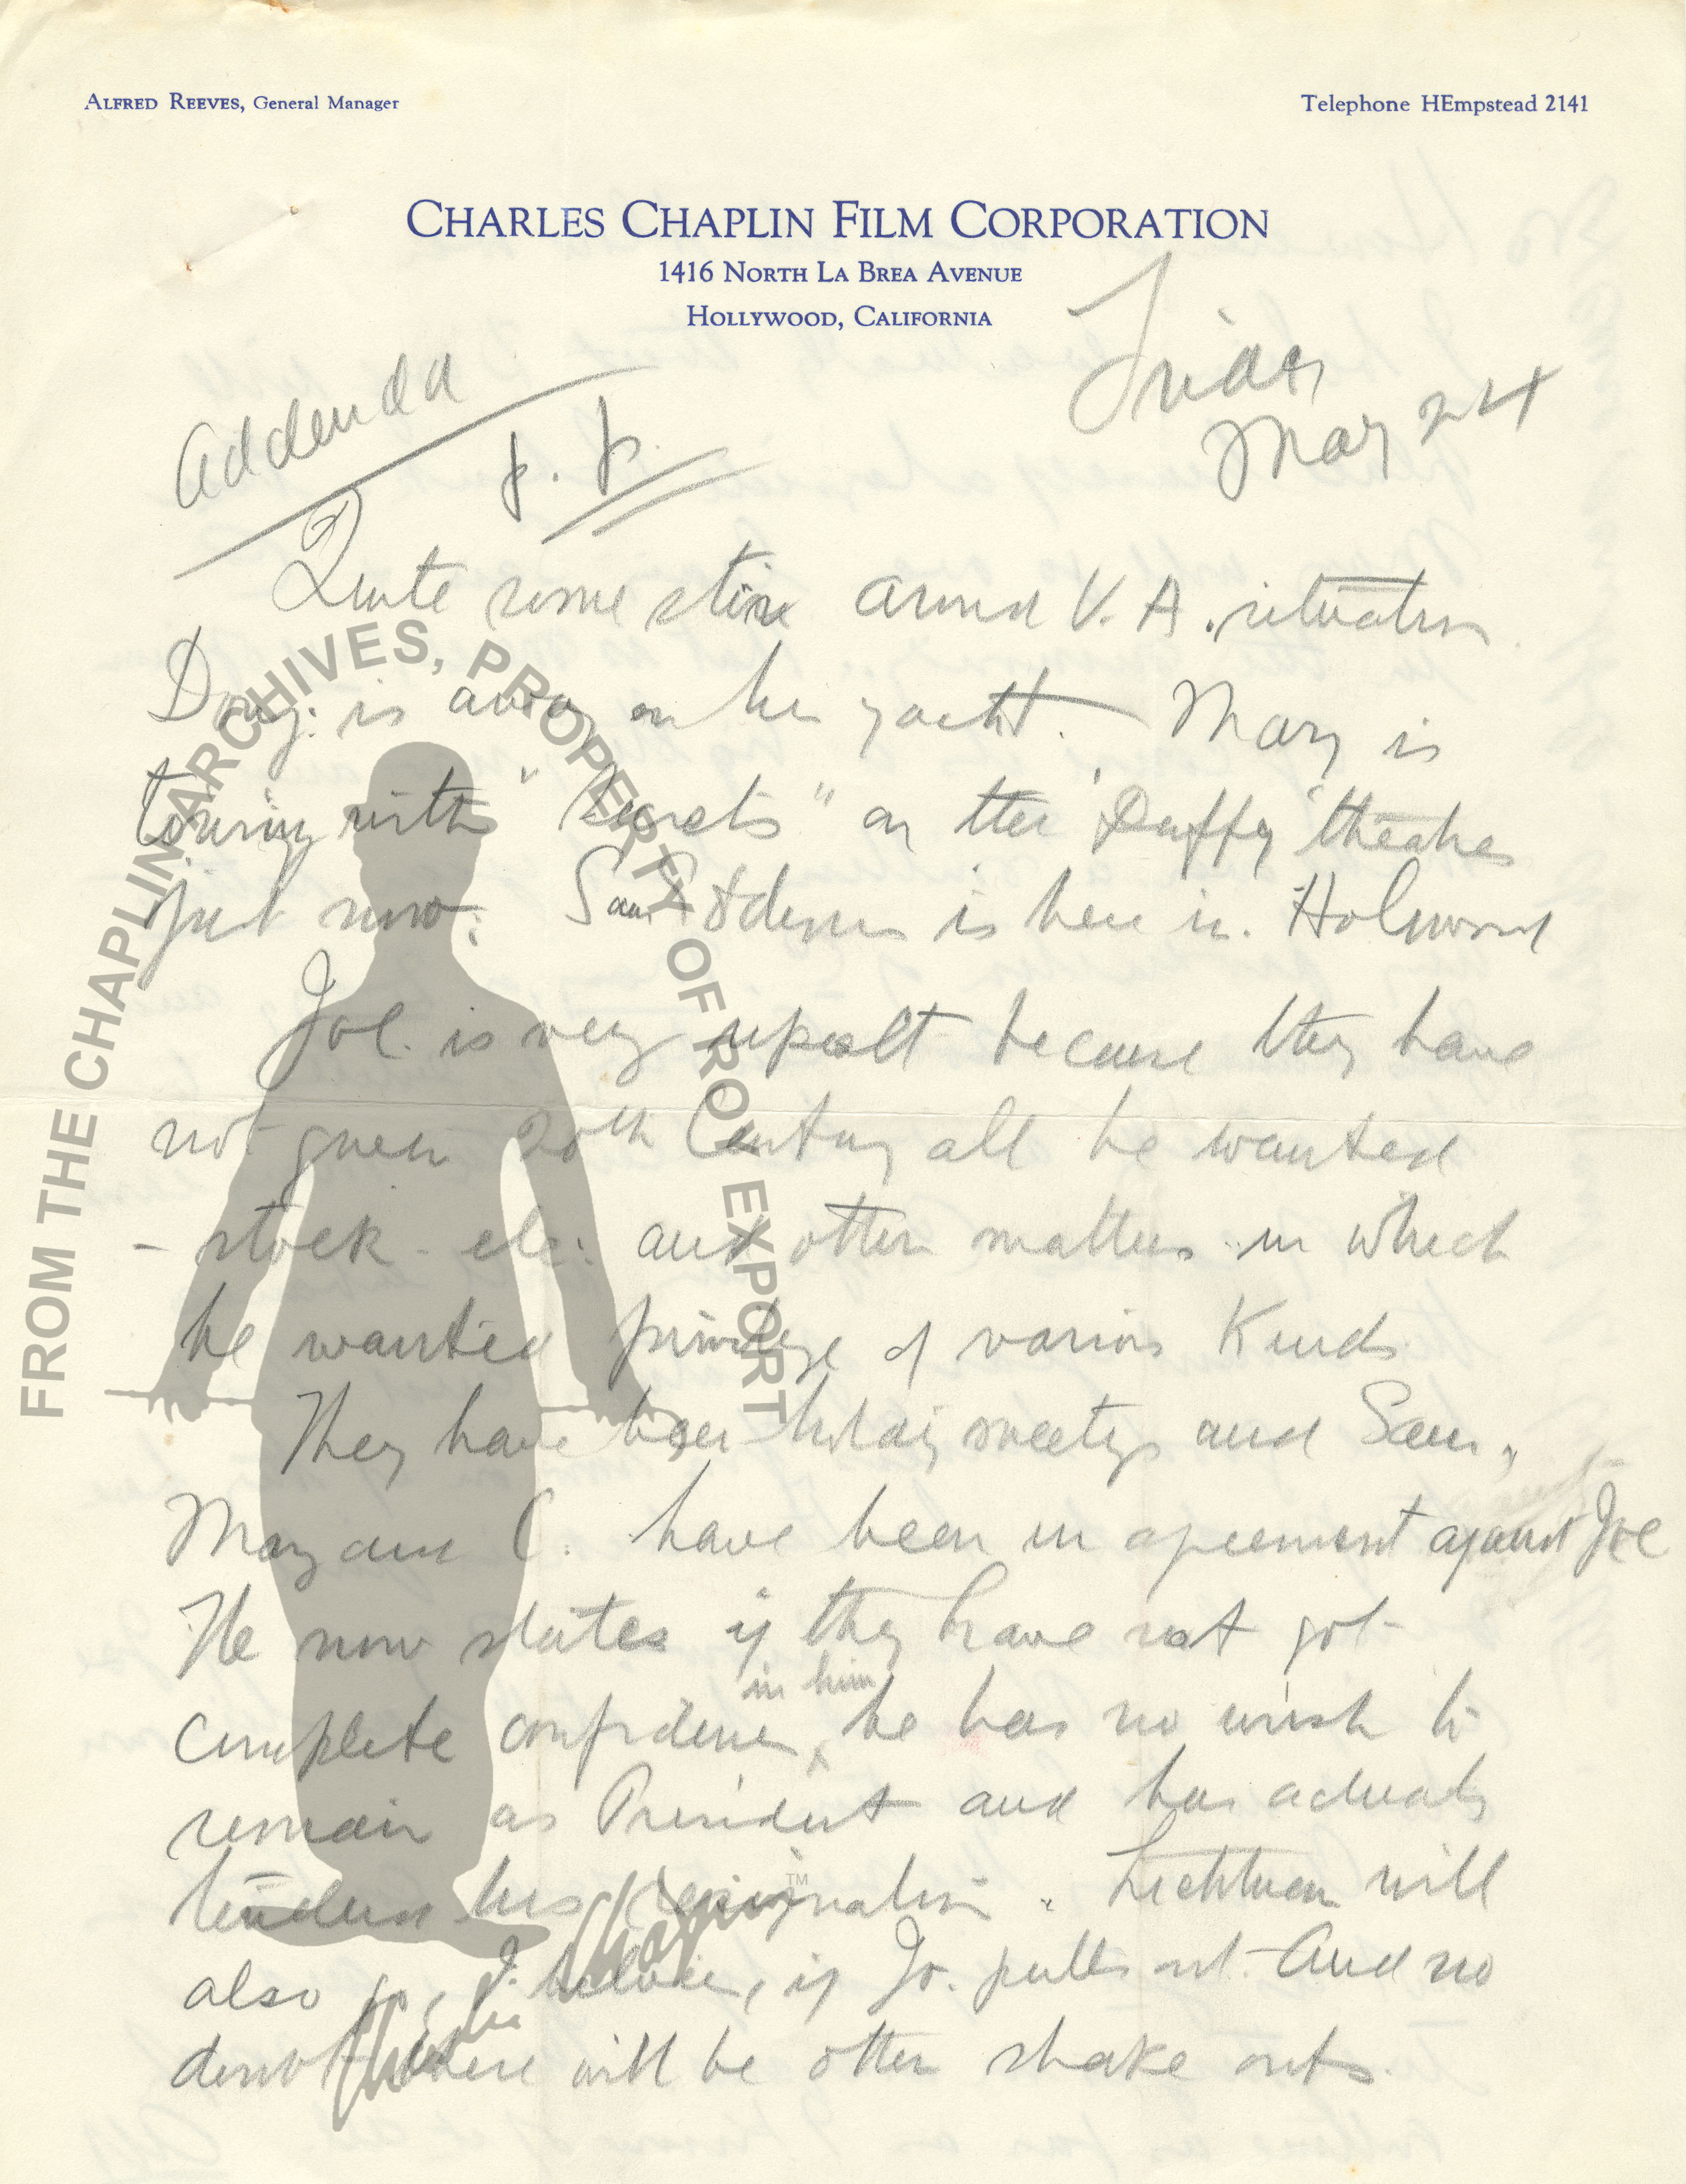 ALFRED REEVES, General Manager
Telephone HEmpstead 2141
CHARLES CHAPLIN FILM CORPORATION
1416 NORTH LA BREA AVENUE
HOLLYWOOD, CALIFORNIA
Friday
May 24
Addenda
J. J.
Quite some stir around U. A. situation
Doug: is away on his yacht. Mary is
touring with "Secrets" on the 'Duffy' theatres
just now: Sam is here in Hollywood
Joe. is very upset because they have
not given 20th Century all he wanted
- stock - etc: and other matters in which
he wanted privilege of various kinds
They have been holding meetings and Sam,
Mary and C. have been in agreement against Joe
He now states if they have not got
complete confidence in him, he has no wish to
remain as President and has actually
tendered his resignation. Lichtman will
also go, I believe, if Jo. pulls out. And no
doubt there will be other shake outs.
FROM THE CHAPLIN ARCHIVES, PROPERTY OF ROY EXPORT
Charlie Chaplin
TM